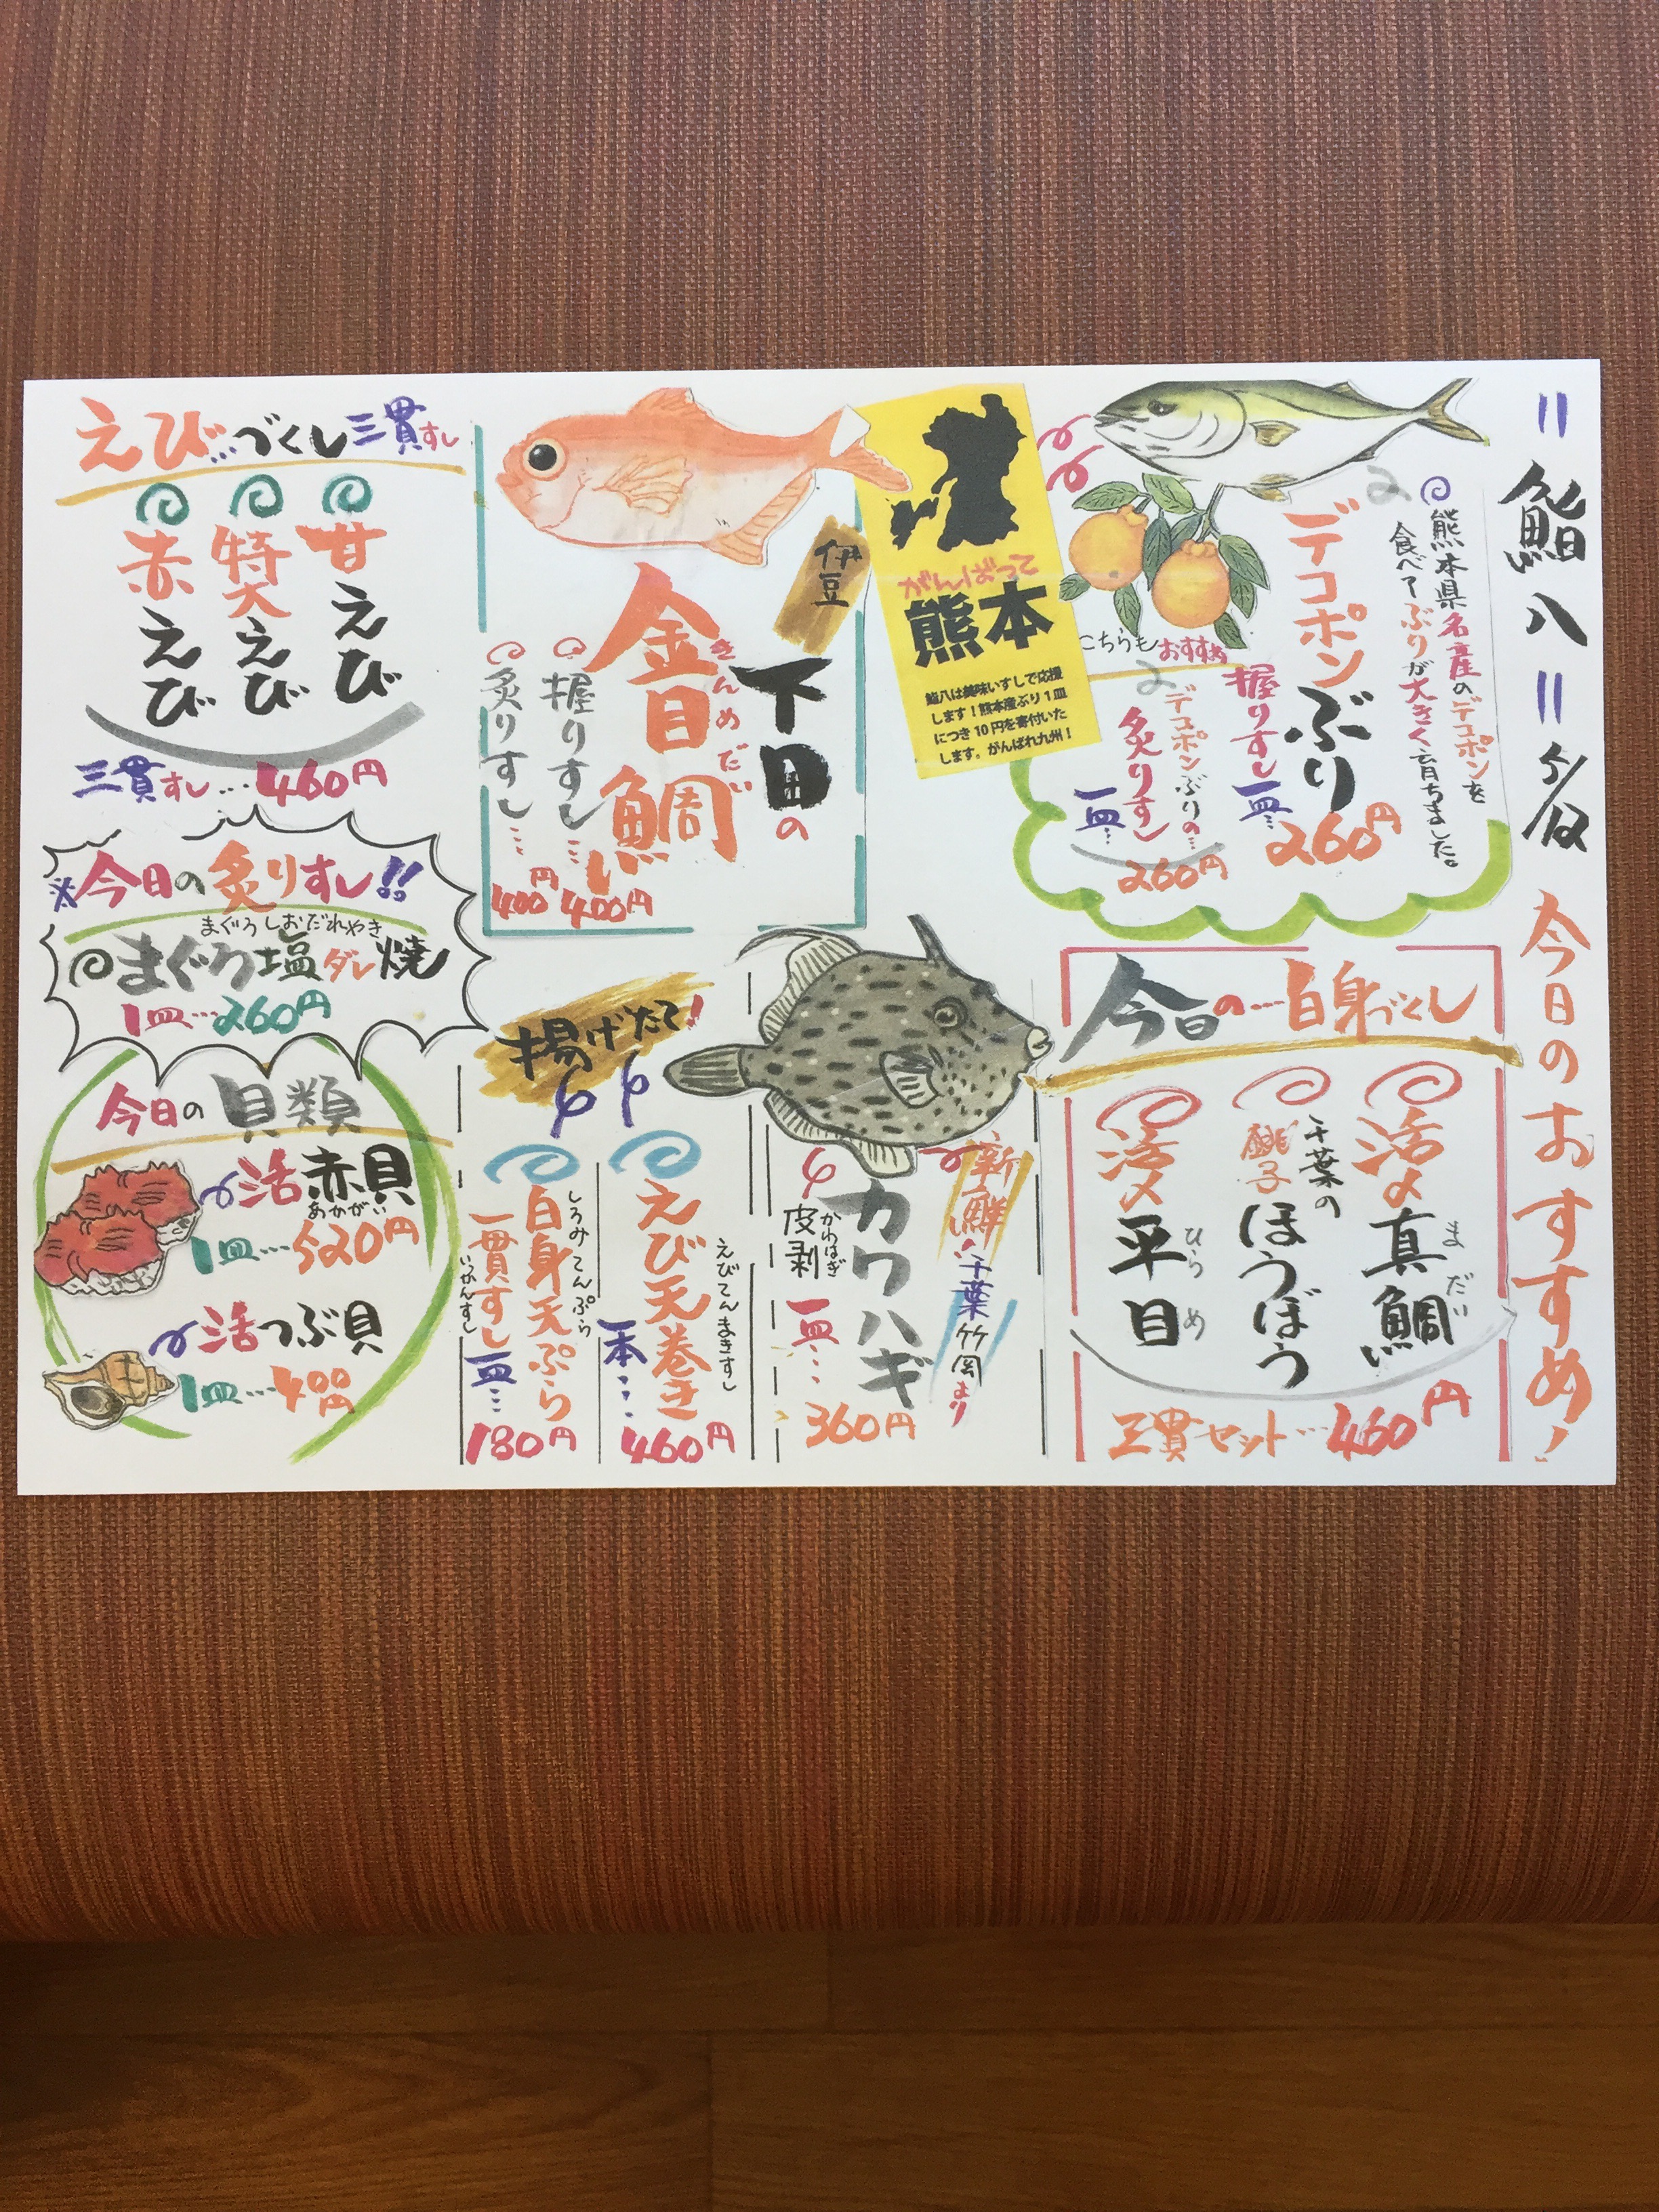 〃鮨八〃
今日のおすすめ!
熊本県名産のデコポンを
食べてぶりが大きく育ちました。
デコポンぶり
握りすし
一皿…
260円
こちらもおすすめ
デコポンぶりの…
炙りすし
一皿…
260円
がんばって
熊本
鮨八は美味いすしで応援
します!熊本産ぶり1皿
につき10円を寄付いた
します。がんばれ九州!
伊豆
下田の
きんめだい
金目鯛
握りすし…
400円
炙りすし…
400円
えびづくし三貫すし
甘えび
特大えび
赤えび
三貫すし…460円
※今日の炙りすし!!
まぐろしおだれやき
まぐろ塩ダレ焼
1皿…260円
今日の…白身づくし
活〆真鯛
まだい
千葉の
銚子
ほうぼう
活〆平目
ひらめ
三貫セット…460円
新鮮!
千葉竹岡より
カワハギ
かわはぎ
皮剥
一皿…
360円
揚げたて!
えびてんまきすし
えび天巻き
一本…
460円
しろみてんぷら
白身天ぷら
一貫すし
いっかんすし
一皿…
180円
今日の貝類
活赤貝
あかがい
1皿…520円
活つぶ貝
1皿…400円